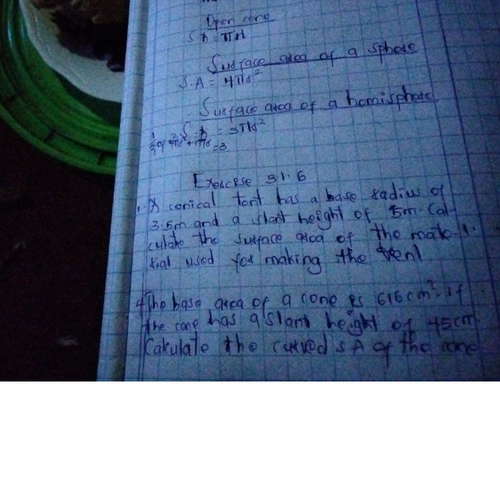 Open cone
S.A = πrl
Surface area of a sphere
S.A = 4πr²
Surface area of a hemisphere
= 3πr²
Exercise 31.6
1. A conical tent has a base radius of
3.5m and a slant height of 5m. Cal-
culate the surface area of the mate-
rial used for making the tent
4. The base area of a cone is 616cm². If
the cone has a slant height of 45cm
Calculate the curved S.A of the cone